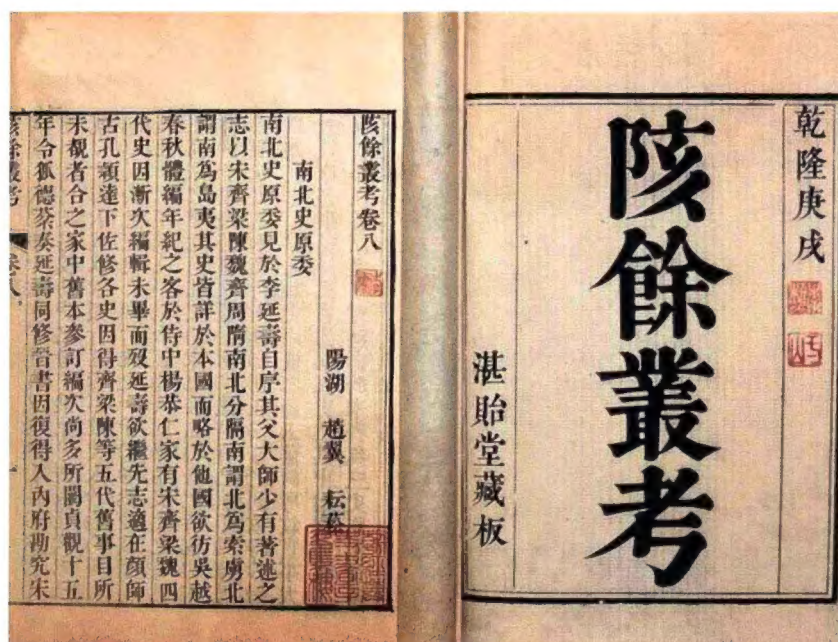 乾隆庚戌
陔餘叢考
湛貽堂藏板
陔餘叢考卷八
陽湖 趙翼 耘菘
南北史原委
南北史原委見於李延壽自序其父大師少有著述之
志以宋齊梁陳魏齊周隋南北分隔南謂北爲索虜北
謂南爲島夷其史皆詳於本國而略於他國欲彷吳越
春秋體編年紀之客於侍中楊恭仁家有宋齊梁魏四
代史因漸次編輯未畢而歿延壽欲繼先志適在顏師
古孔穎達下佐修各史因得齊梁陳等五代舊事目所
未覩者合之家中舊本參訂編次尚多所闕貞觀十五
年令狐德棻奏延壽同修晉書因復得入內府勘究宋
陔餘叢考
卷八